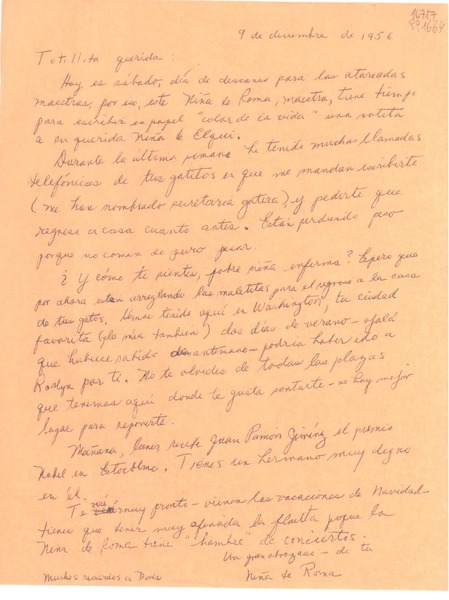 16717
Rº. 1664
9 de diciembre de 1956
Tutillita querida:
Hoy es sábado, día de descanso para las atareadas
maestras, por eso, este Niña de Roma, maestra, tiene tiempo
para escribir en papel "color de la vida" una notita
a su querida Niña de Elqui.
Durante la última semana he tenido muchas llamadas
telefónicas de tus gatitos en que me mandan escribirte
(me han nombrado secretaria gatera), y pedirte que
regrese a casa cuanto antes. Están perdiendo peso
porque no coman de puro pesar.
¿Y cómo te sientes, pobre niña enferma? Espero que
por ahora estan arreglando las maletitas para el regreso a la casa
de tus gatos. Hemos tenido aquí en Washington, tu ciudad
favorita (y la mía también) dos días de verano - ojalá
que hubiese sabido de antemano - podría haber ido a
Roslyn por ti. No te olvides de todas las plazas
que tenemos aquí donde te gusta sentarte - no hay mejor
lugar para reponerte.
Mañana, lunes recibe Juan Ramón Jiménez el premio
Nobel en Estocolmo. Tienes un hermano muy digno
en él.
Te veré muy pronto - vienen las vacaciones de Navidad -
tienes que tener muy afinada la flauta porque la
Niña de Roma tiene "hambre" de conciertos.
Un gran abrazo - de tu
Muchos recuerdos a Doris Niña de Roma